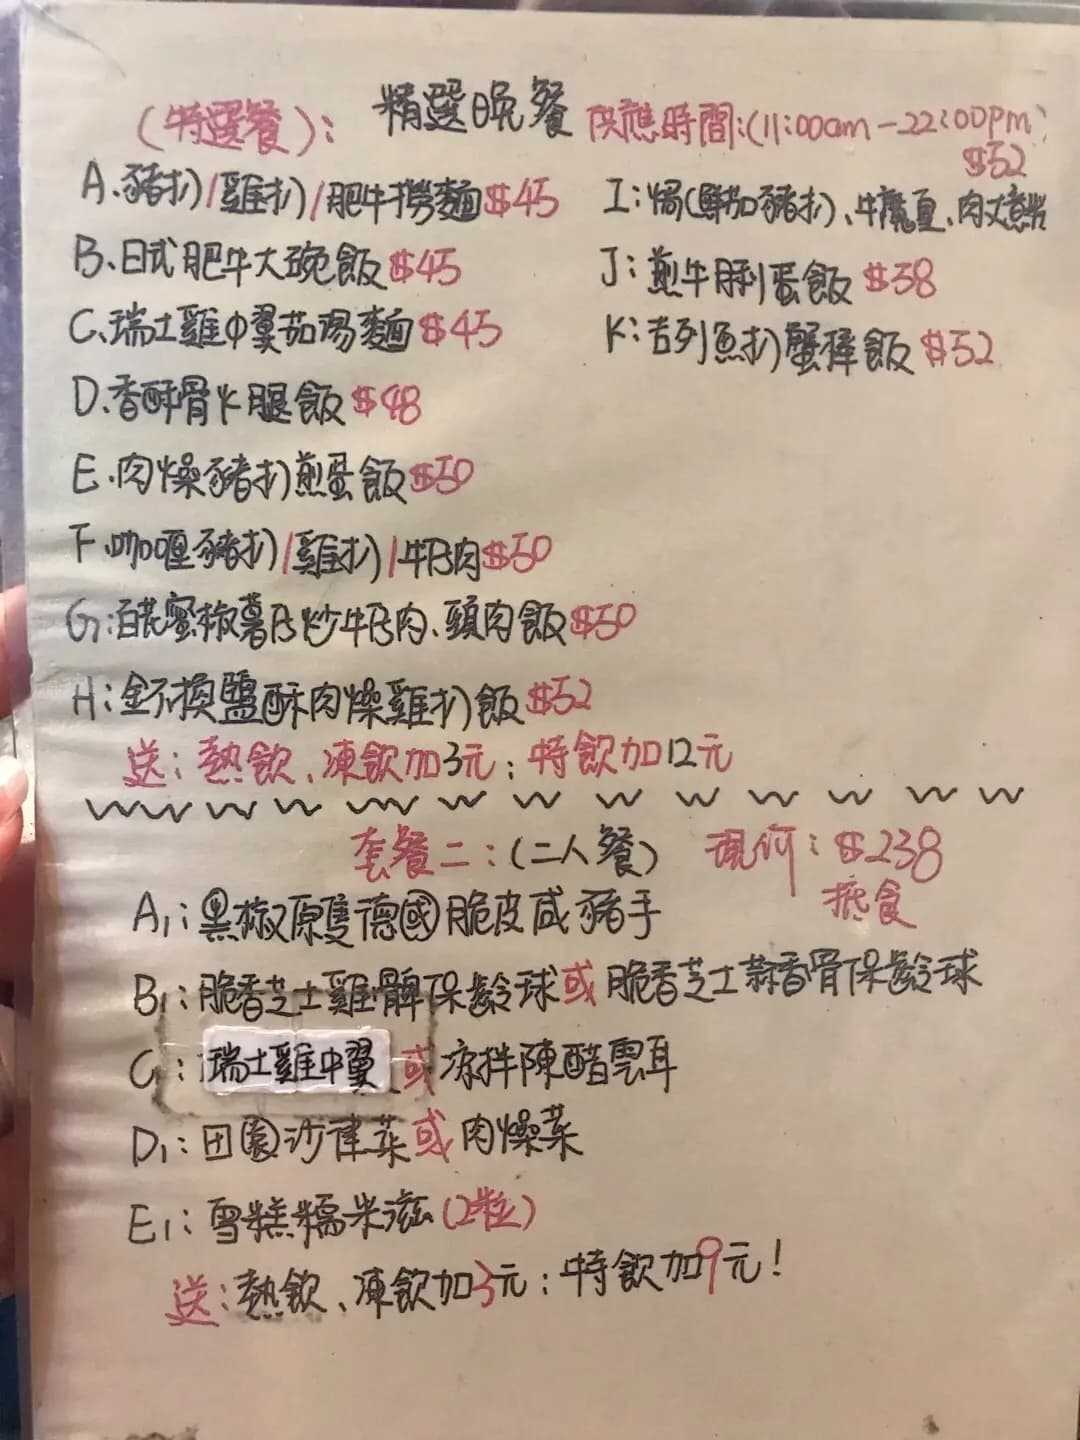 精選晚餐
(特選餐): 供應時間:(11:00am-22:00pm)
A.豬扒/雞扒/肥牛撈麵$45
B.日式肥牛大碗飯$45
C.瑞士雞中翼茄湯麵$45
D.香酥骨火腿飯$48
E.肉燥豬扒煎蛋飯$50
F.咖喱豬扒/雞扒/牛仔肉$50
G:百花蜜椒薯仔炒牛仔肉、頸肉飯$50
H:金不換鹽酥肉燥雞扒飯$52
$52
I:焗(鮮茄豬扒)、牛魔皇、肉丈意粉
J:煎牛脷蛋飯$38
K:吉列魚扒蟹棒飯$52
送:熱飲、凍飲加3元;特飲加12元
套餐二:(二人餐) 現價:$238
抵食
A1:黑椒原隻德國脆皮咸豬手
B1:脆香芝士雞髀保齡球或脆香芝士蒜香骨保齡球
C1:瑞士雞中翼或涼拌陳醋雲耳
D1:田園沙律菜或肉燥菜
E1:雪糕糯米滋(2粒)
送:熱飲、凍飲加3元;特飲加9元!